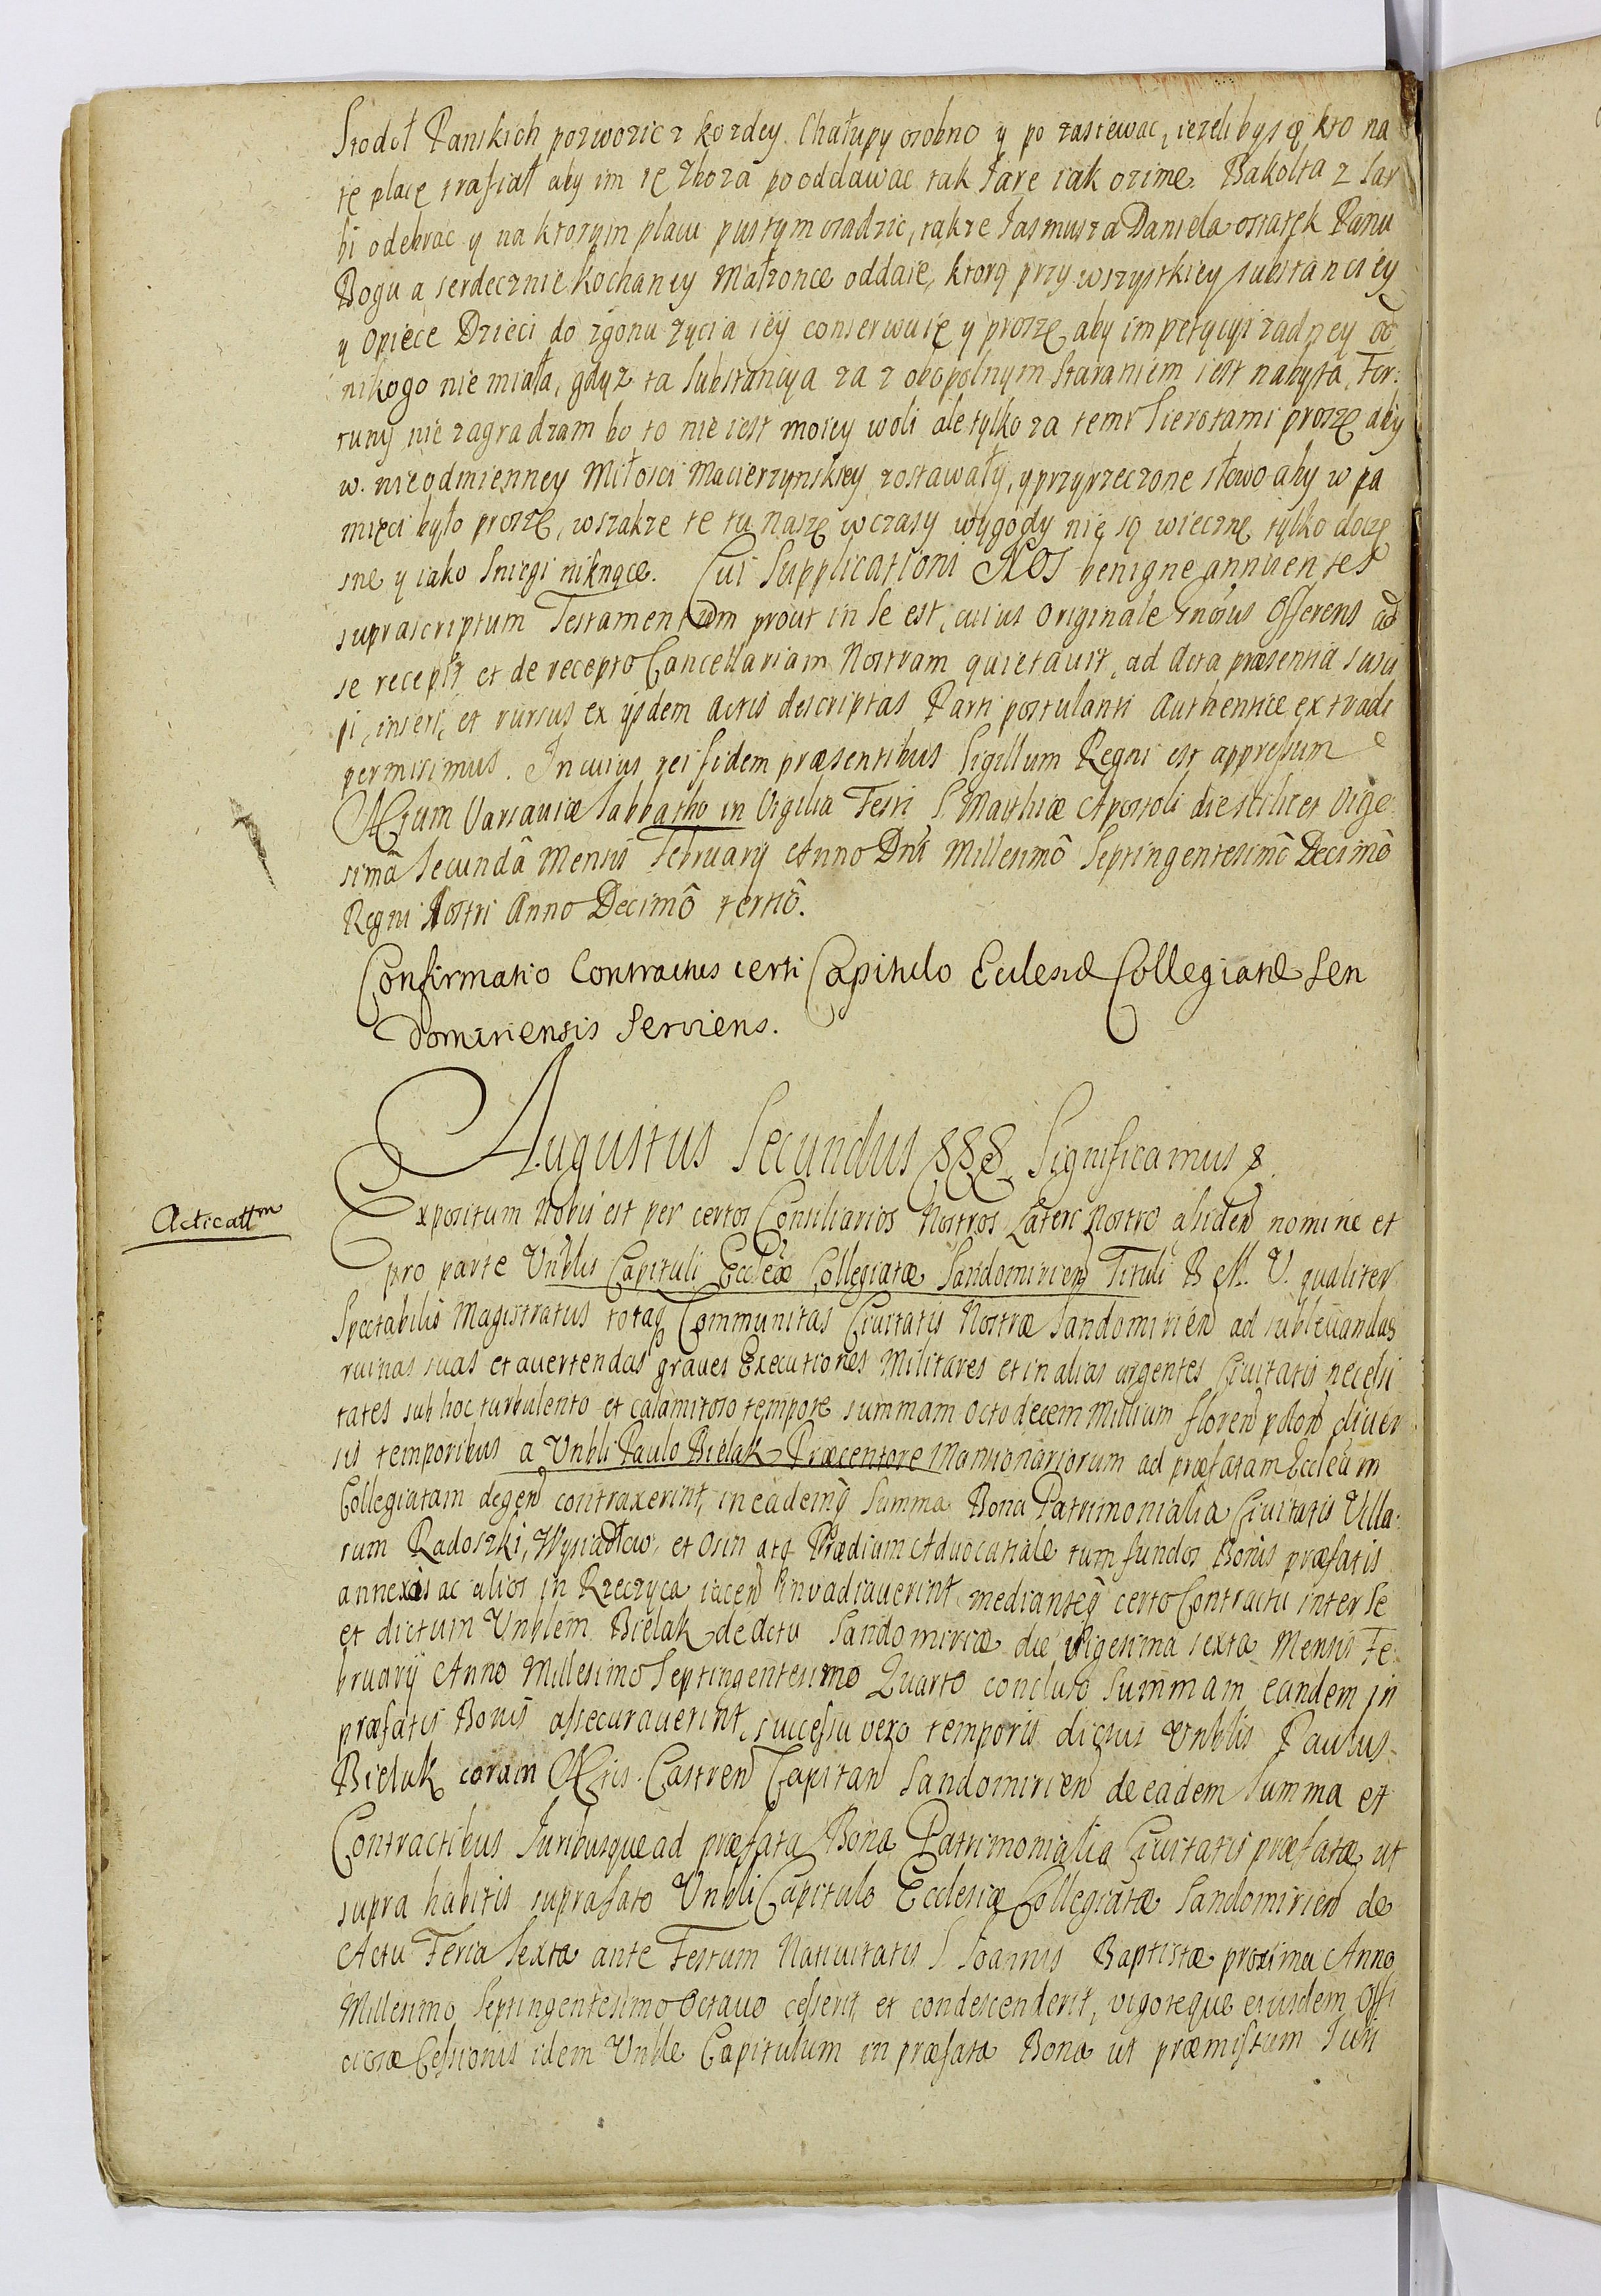 Stodoł Panskich pozwozic z kozdey Chałupy osobno y po zasiewac, iezeli bysię kto na
te place trafiał aby im te zboza pooddawac tak Jare iak ozime. Bakołta z Jar
bi odebrac y na ktorym placu pustym osadzic, takze Jasmusza Daniela ostatęk Panu
Bogu a serdecznie kochaney Małzonce oddaie, ktorą przy wszystkiey substanciey
y opiece Dzieci do zgonu zycia iey conserwuię y proszę aby impetycyi zadney od
nikogo nie miała, gdyz ta Substancya za z obopolnym staraniem iest nabyta, For:
tuny nie zagradzam bo to nie iest moiey woli ale tylko za temi Sierotami proszę aby
w. nieodmienney Miłosci Macierzynskiey zostawały, y przyrzeczone słowo aby w pa
mięci było proszę, wszakze te tu nasze wczasy wygody nie są wieczne tylko docze
sne y iako sniegi niknące. Cui Supplicationi NOS benigne annuentes
suprascriptum Testamentum prout in se est, cuius Originale Offerens ad
se recepit et de recepto Cancellariam Nostram quietauit, ad Acta præsentia susci
pi, inseri, et rursus ex ijsdem Actis descriptas Parti postulanti Authentice extradi
permisimus. In cuius rei fidem præsentibus Sigillum Regni est appressum
Actum Varsauiæ Sabbatho in Vigilia Festi S. Matthiæ Apostoli die scilicet Vige
simâ Secundâ Mensis February Anno Dni Millesimô Septingentesimô Decimô
Regni Nostri Anno Decimô tertiô.
Confirmatio Contractus certi Capitulo Eclesiæ Collegiatæ Sen
domiriensis Serviens.
Augustus Secundus &&& Significamus &
Acticattm
Expositum Nobis est per certos Consiliarios Nostros Lateri Nostro assiden nomine et
pro parte Vnblis Capituli Eccleæ Collegiatæ Sandomirien Tituli B M. V. qualiter
Spectabilis Magistratus totaq Communitas Ciuitatis Nostræ Sandomirien ad subleuandas
ruinas suas et auertendas graues Executiones Militares et in alias urgentes Ciuitatis necessi
tates sub hoc turbulento et calamitoso tempore summam Octodecem Millium floren polon diuer
sis temporibus a Vnbli Paulo Bielak Præcentore Mansionariorum ad præfatam Eccleam
Collegiatam degen contraxerint, in eademq Summa Bona Patrimonialia Ciuitatis Villa:
rum Radoszki, Wysiadłow, et Osin atq Prædium Aduocatiale tum fundos Bonis præfatis
annexos ac alios in Rzeczyca iacen inuadiauerint, medianteq certo Contractu inter se
et dictum Vnblem Bielak de Actu Sandomiriæ die Vigesima sexta Mensis Fe:
bruarÿ Anno Millesimo Septingentesimo Quarto concluso Summam eandem in
præfatis Bonis assecurauerint, successu vero temporis dictus Vnblis Paulus
Bielak coram Actis Castren Capitan Sandomirien de eadem Summa et
Contractibus Juribusque ad præfata Bona Patrimonialia Ciuitatis præfatæ ut
supra habitis suprafato Vnbli Capitulo Ecclesiæ Collegiatæ Sandomirien de
Actu Feria Sexta ante Festum Natiuitatis S Joannis Baptistæ proxima Anno
Millesimo Septingentesimo Octauo cesserit et condescenderit, vigoreque eiusdem Offi
ciosæ Cessionis idem Vnble Capitulum in præfata Bona ut præmissum Juri